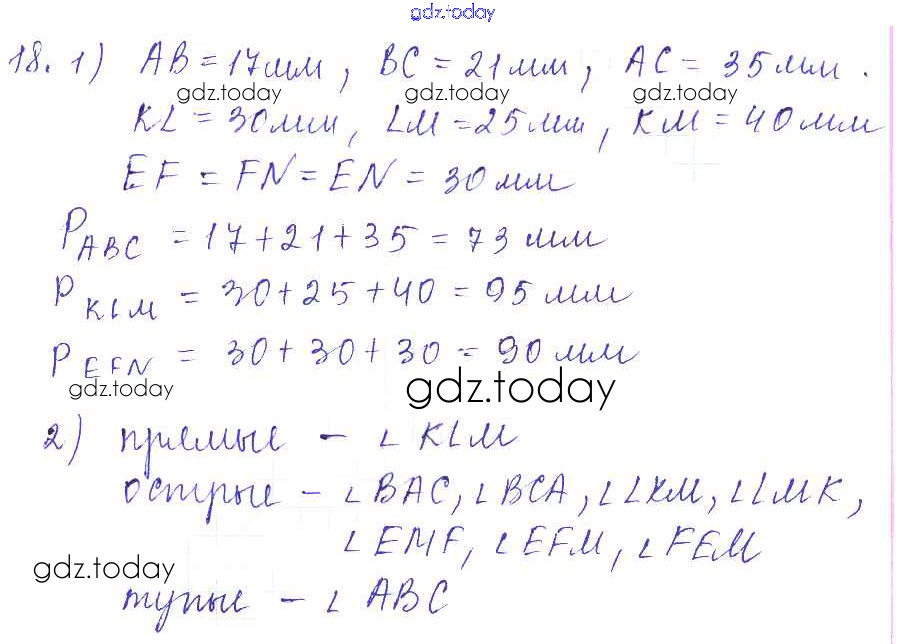 gdz.today
18. 1) AB = 17мм, BC = 21мм, AC = 35мм.
gdz.today gdz.today gdz.today
KL = 30мм, LM = 25мм, KM = 40мм
EF = FN = EN = 30мм
P ABC = 17+21+35 = 73мм
P KLM = 30+25+40 = 95мм
P EFN = 30+30+30 = 90мм
gdz.today gdz.today
2) прямые - ∠KLM
острые - ∠BAC, ∠BCA, ∠LKM, ∠LMK,
∠EMF, ∠EFM, ∠FEM
gdz.today
тупые - ∠ABC